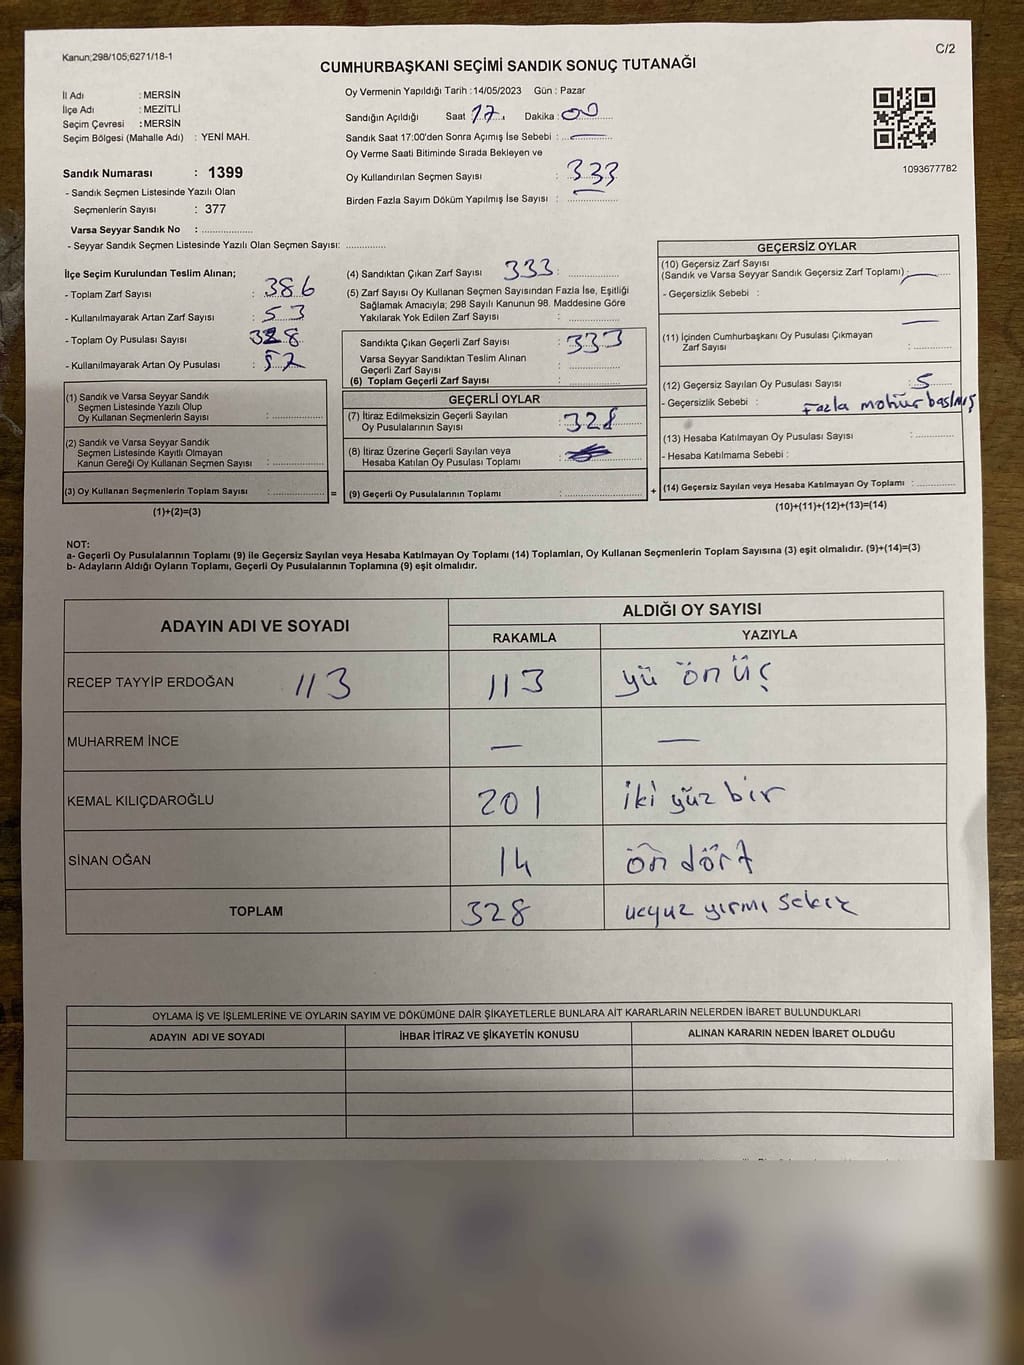 Kanun;298/105;6271/18-1
C/2
CUMHURBAŞKANI SEÇİMİ SANDIK SONUÇ TUTANAĞI
İl Adı : MERSİN
İlçe Adı : MEZİTLİ
Seçim Çevresi : MERSİN
Seçim Bölgesi (Mahalle Adı) : YENİ MAH.
Sandık Numarası : 1399
- Sandık Seçmen Listesinde Yazılı Olan
Seçmenlerin Sayısı : 377
Varsa Seyyar Sandık No : ....................
- Seyyar Sandık Seçmen Listesinde Yazılı Olan Seçmen Sayısı: ...............
Oy Vermenin Yapıldığı Tarih :14/05/2023 Gün : Pazar
Sandığın Açıldığı Saat 17 Dakika : 00
Sandık Saat 17:00'den Sonra Açımış İse Sebebi : —
Oy Verme Saati Bitiminde Sırada Bekleyen ve
Oy Kullandırılan Seçmen Sayısı : 333
Birden Fazla Sayım Döküm Yapılmış İse Sayısı : —
1093677782
İlçe Seçim Kurulundan Teslim Alınan;
- Toplam Zarf Sayısı : 386
- Kullanılmayarak Artan Zarf Sayısı : 53
- Toplam Oy Pusulası Sayısı
- Kullanılmayarak Artan Oy Pusulası : 52
(1) Sandık ve Varsa Seyyar Sandık
Seçmen Listesinde Yazılı Olup
Oy Kullanan Seçmenlerin Sayısı : ...............
(2) Sandık ve Varsa Seyyar Sandık
Seçmen Listesinde Kayıtlı Olmayan
Kanun Gereği Oy Kullanan Seçmen Sayısı : ...............
(3) Oy Kullanan Seçmenlerin Toplam Sayısı : ............... =
(1)+(2)=(3)
(4) Sandıktan Çıkan Zarf Sayısı 333 : ...............
(5) Zarf Sayısı Oy Kullanan Seçmen Sayısından Fazla İse, Eşitliği
Sağlamak Amacıyla; 298 Sayılı Kanunun 98. Maddesine Göre
Yakılarak Yok Edilen Zarf Sayısı : ...............
Sandıkta Çıkan Geçerli Zarf Sayısı : 333
Varsa Seyyar Sandıktan Teslim Alınan
Geçerli Zarf Sayısı : ...............
(6) Toplam Geçerli Zarf Sayısı : ...............
GEÇERLİ OYLAR
(7) İtiraz Edilmeksizin Geçerli Sayılan
Oy Pusulalarının Sayısı : 328
(8) İtiraz Üzerine Geçerli Sayılan veya
Hesaba Katılan Oy Pusulası Toplamı :
(9) Geçerli Oy Pusulalarının Toplamı : ............... +
GEÇERSİZ OYLAR
(10) Geçersiz Zarf Sayısı
(Sandık ve Varsa Seyyar Sandık Geçersiz Zarf Toplamı) : —
- Geçersizlik Sebebi :
—
(11) İçinden Cumhurbaşkanı Oy Pusulası Çıkmayan
Zarf Sayısı : ...............
(12) Geçersiz Sayılan Oy Pusulası Sayısı : 5
- Geçersizlik Sebebi : Fazla mohür basılmış
(13) Hesaba Katılmayan Oy Pusulası Sayısı : ...............
- Hesaba Katılmama Sebebi :
(14) Geçersiz Sayılan veya Hesaba Katılmayan Oy Toplamı : ...............
(10)+(11)+(12)+(13)=(14)
NOT:
a- Geçerli Oy Pusulalarının Toplamı (9) ile Geçersiz Sayılan veya Hesaba Katılmayan Oy Toplamı (14) Toplamları, Oy Kullanan Seçmenlerin Toplam Sayısına (3) eşit olmalıdır. (9)+(14)=(3)
b- Adayların Aldığı Oyların Toplamı, Geçerli Oy Pusulalarının Toplamına (9) eşit olmalıdır.
ADAYIN ADI VE SOYADI ALDIĞI OY SAYISI
RAKAMLA YAZIYLA
RECEP TAYYİP ERDOĞAN 113 113 yü ön üç
MUHARREM İNCE — —
KEMAL KILIÇDAROĞLU 201 iki yüz bir
SİNAN OĞAN 14 ön dört
TOPLAM 328 ucyuz yırmı sekiz
OYLAMA İŞ VE İŞLEMLERİNE VE OYLARIN SAYIM VE DÖKÜMÜNE DAİR ŞİKAYETLERLE BUNLARA AİT KARARLARIN NELERDEN İBARET BULUNDUKLARI
ADAYIN ADI VE SOYADI İHBAR İTİRAZ VE ŞİKAYETİN KONUSU ALINAN KARARIN NEDEN İBARET OLDUĞU